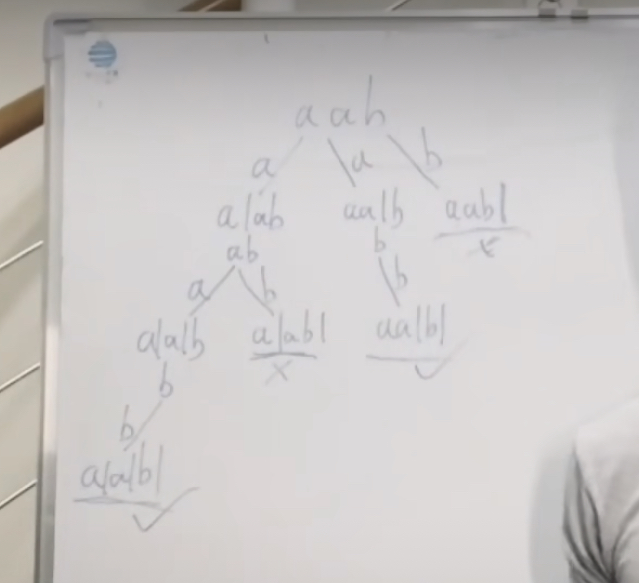 aab
a a b
a|ab aa|b aab|
ab b ×
a b b
a|a|b a|ab| aa|b|
b × ✓
b
a|a|b|
✓